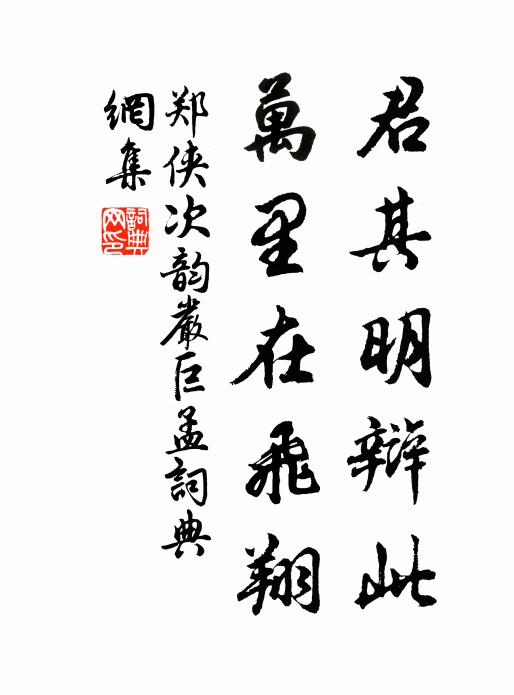 君其明辯此
萬里在飛翔
郑侠次韵嚴巨孟詞典
網集
詞典
网印